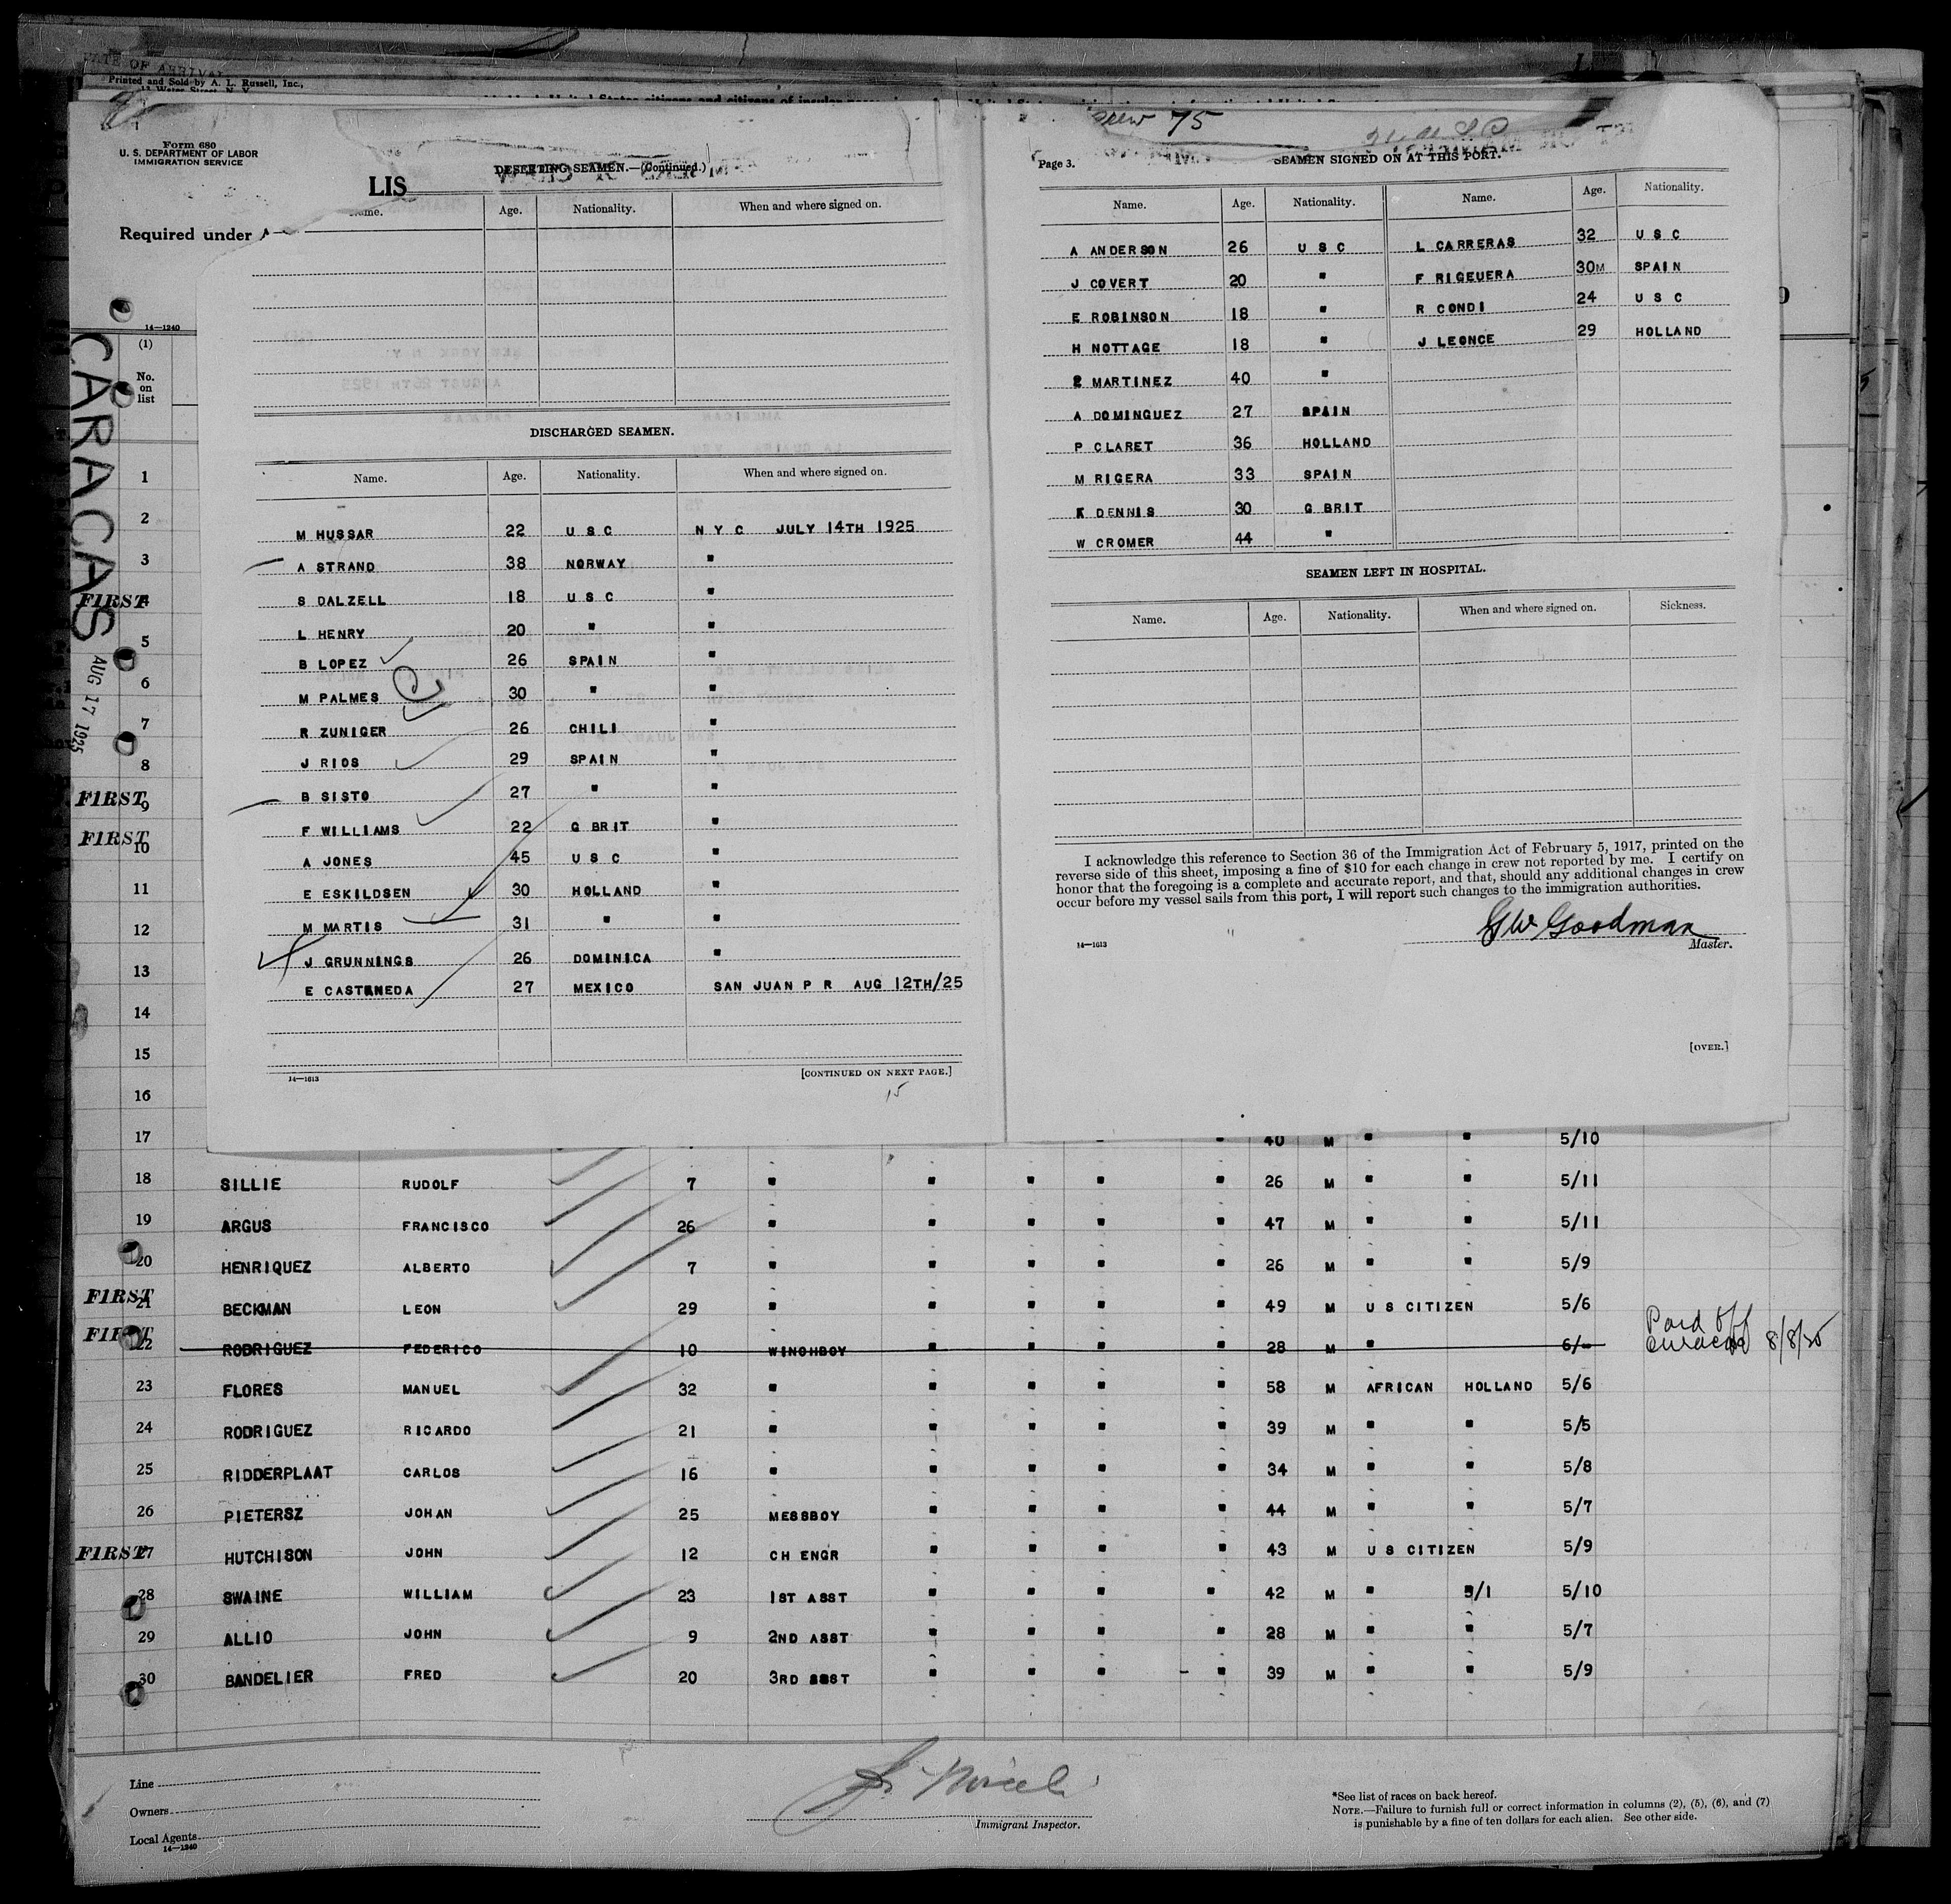 DATE OF ARRIVAL
Printed and Sold by A. L. Russell, Inc.,
Form 680
U. S. DEPARTMENT OF LABOR
IMMIGRATION SERVICE
LIS
Required under A
14—1240
(1)
No.
on
list
CARACAS
AUG 17 1925
DESERTING SEAMEN.—(Continued.)
Name. Age. Nationality. When and where signed on.
DISCHARGED SEAMEN.
Name. Age. Nationality. When and where signed on.
M HUSSAR 22 U S C N Y C JULY 14TH 1925
A STRAND 38 NORWAY "
S DALZELL 18 U S C "
L HENRY 20 " "
B LOPEZ 26 SPAIN "
M PALMES 30 " "
R ZUNIGER 26 CHILI "
J RIOS 29 SPAIN "
B SISTO 27 " "
F WILLIAMS 22 G BRIT "
A JONES 45 U S C "
E ESKILDSEN 30 HOLLAND "
M MARTIS 31 " "
J GRUNNINGS 26 DOMINICA "
E CASTANEDA 27 MEXICO SAN JUAN P R AUG 12TH/25
14—1613 [CONTINUED ON NEXT PAGE.]
15
Crew 75
Page 3. SEAMEN SIGNED ON AT THIS PORT.
Name. Age. Nationality. Name. Age. Nationality.
A ANDERSON 26 U S C L CARRERAS 32 U S C
J COVERT 20 " F RIGEUERA 30M SPAIN
E ROBINSON 18 " R CONDI 24 U S C
H NOTTAGE 18 " J LEONCE 29 HOLLAND
MARTINEZ 40 "
A DOMINGUEZ 27 SPAIN
P CLARET 36 HOLLAND
M RIGERA 33 SPAIN
K DENNIS 30 G BRIT
W CROMER 44 "
SEAMEN LEFT IN HOSPITAL.
Name. Age. Nationality. When and where signed on. Sickness.
I acknowledge this reference to Section 36 of the Immigration Act of February 5, 1917, printed on the
reverse side of this sheet, imposing a fine of $10 for each change in crew not reported by me. I certify on
honor that the foregoing is a complete and accurate report, and that, should any additional changes in crew
occur before my vessel sails from this port, I will report such changes to the immigration authorities.
G W Goodman
Master.
14—1613
[OVER.]
1
2
3
FIRST 4
5
6
7
8
FIRST 9
FIRST 10
11
12
13
14
15
16
17 " 40 M " " 5/10
18 SILLIE RUDOLF 7 " " " " " 26 M " " 5/11
19 ARGUS FRANCISCO 26 " " " " " 47 M " " 5/11
20 HENRIQUEZ ALBERTO 7 " " " " " 26 M " " 5/9
FIRST 21 BECKMAN LEON 29 " " " " " 49 M U S CITIZEN 5/6
FIRST 22 RODRIGUEZ FEDERICO 10 WINCHBOY " " " " 28 M " 6/- Paid off Curacao 8/8/25
23 FLORES MANUEL 32 " " " " " 58 M AFRICAN HOLLAND 5/6
24 RODRIGUEZ RICARDO 21 " " " " " 39 M " " 5/5
25 RIDDERPLAAT CARLOS 16 " " " " " 34 M " " 5/8
26 PIETERSZ JOHAN 25 MESSBOY " " " " 44 M " " 5/7
FIRST 27 HUTCHISON JOHN 12 CH ENGR " " " " 43 M U S CITIZEN 5/9
28 SWAINE WILLIAM 23 1ST ASST " " " " 42 M " 5/1 5/10
29 ALLIO JOHN 9 2ND ASST " " " " 28 M " " 5/7
30 BANDELIER FRED 20 3RD ASST " " " - " 39 M " " 5/9
Line
Owners
Local Agents
14—1240
Immigrant Inspector.
*See list of races on back hereof.
NOTE.—Failure to furnish full or correct information in columns (2), (5), (6), and (7)
is punishable by a fine of ten dollars for each alien. See other side.